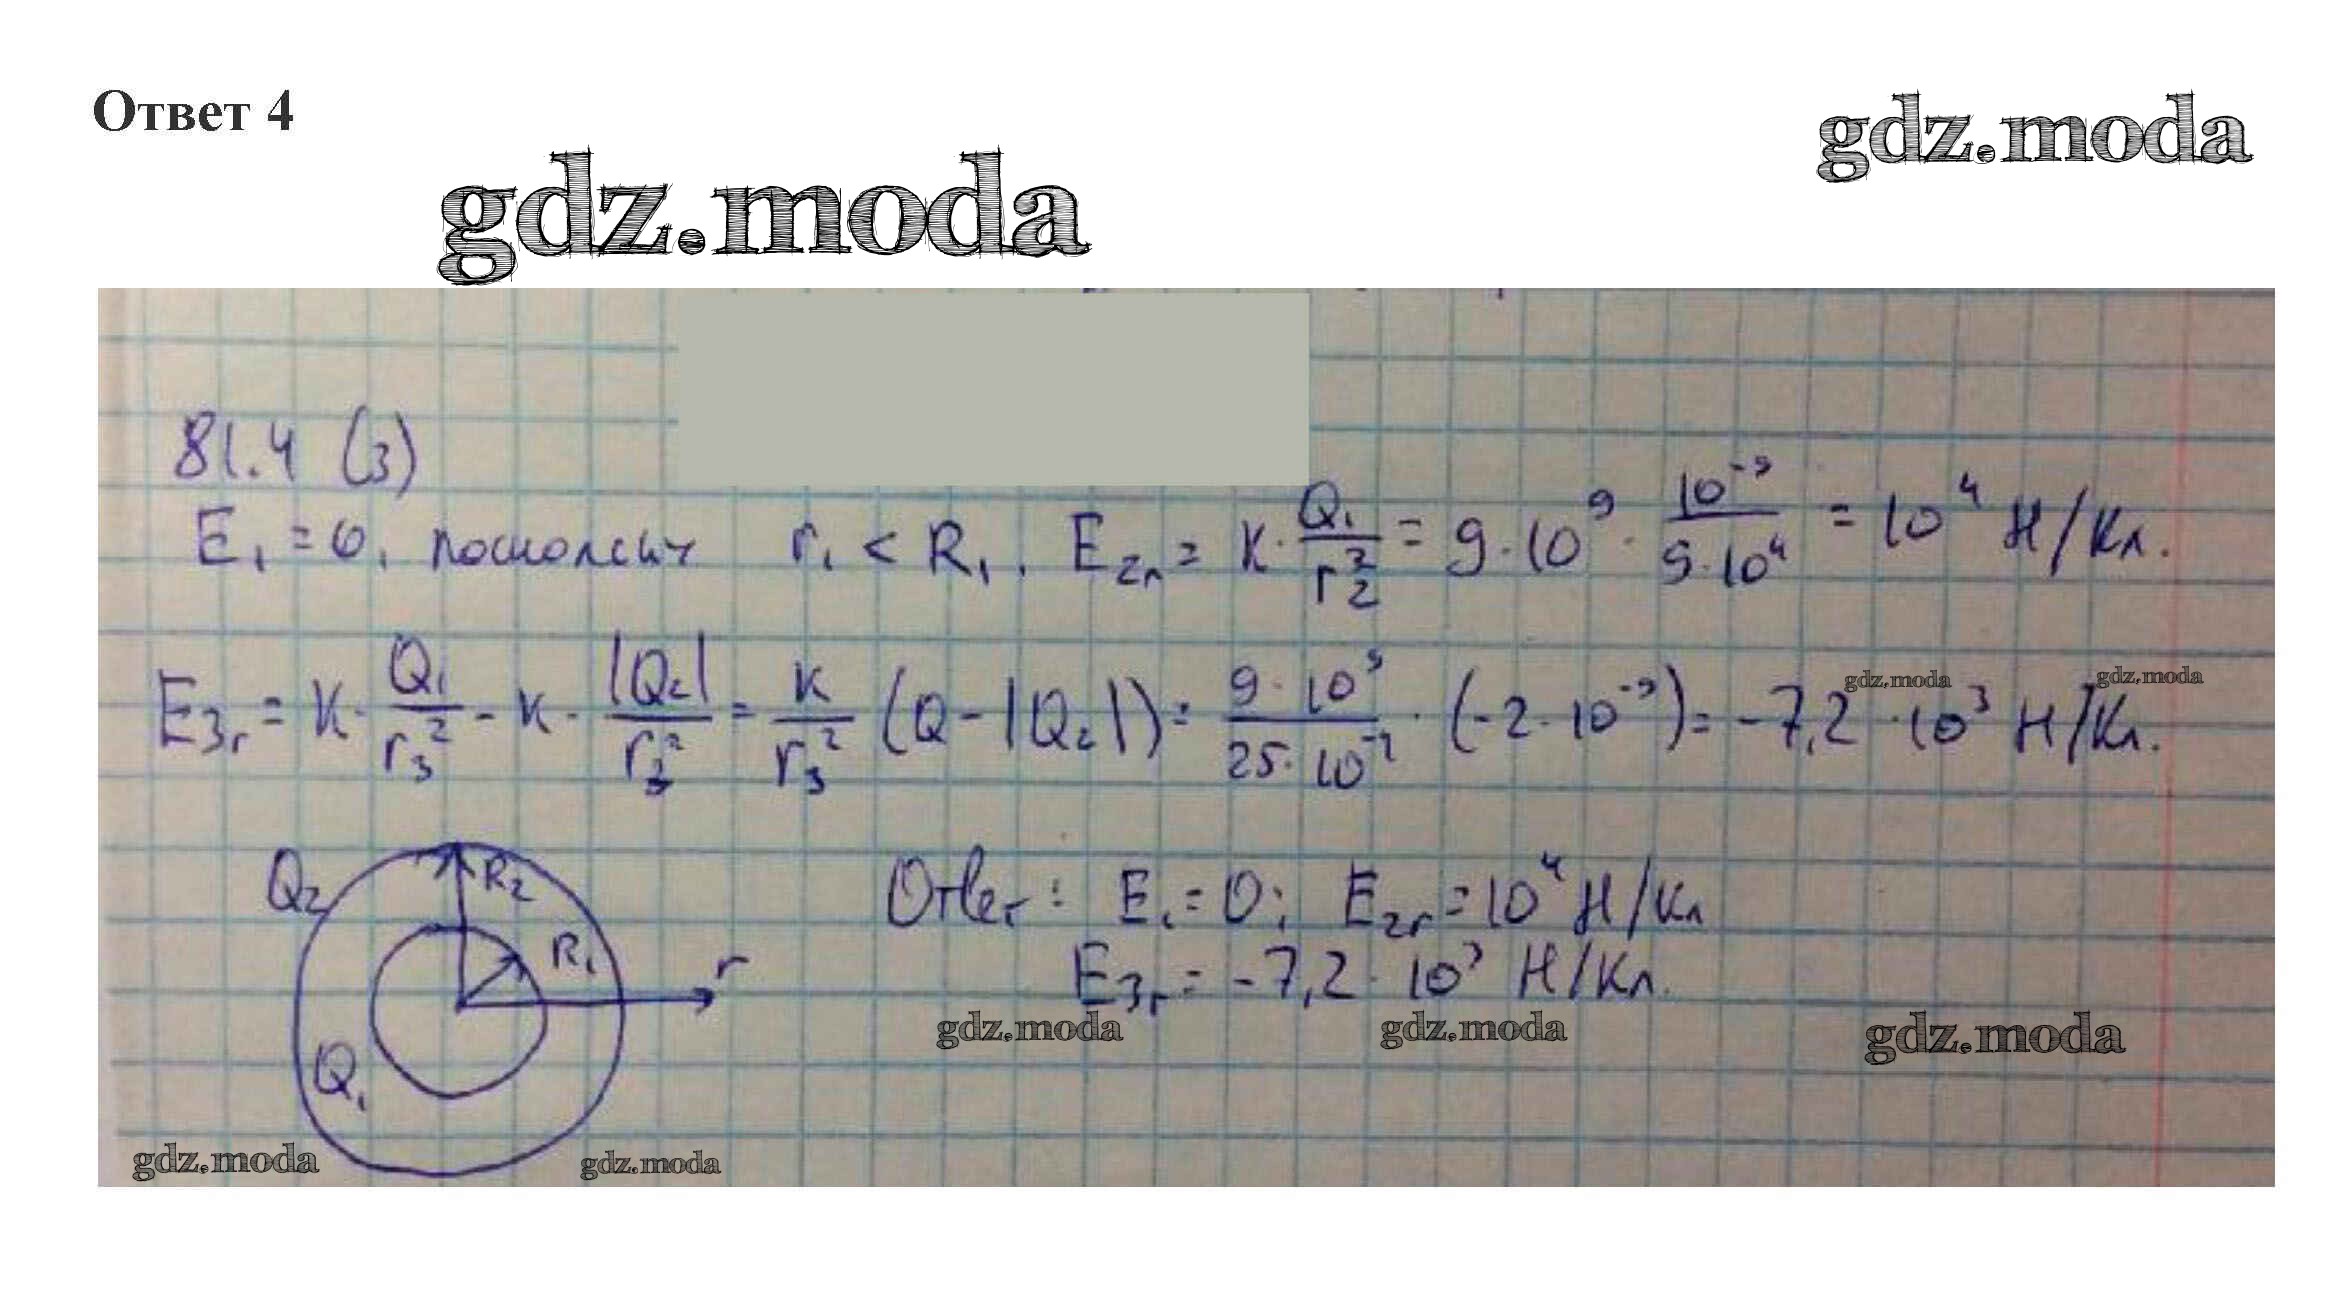 Ответ 4
gdz.moda
gdz.moda
81.4 (3)
E₁ = 0, r₁ < R₁. E₂ᵣ = k · Q₁/r₂² = 9 · 10⁹ · 10⁻⁹/9·10⁴ = 10⁴ Н/Кл.
E₃ᵣ = k · Q₁/r₃² - k · |Q₂|/r₃² = k/r₃² (Q - |Q₂|) = 9 · 10⁹/25 · 10⁻² · (-2 · 10⁻⁹) = -7,2 · 10³ Н/Кл.
gdz.moda gdz.moda
Q₂ R₂
R₁ r
Q₁
Ответ: E₁ = 0; E₂ᵣ = 10⁴ Н/Кл
E₃ᵣ = -7,2 · 10³ Н/Кл.
gdz.moda gdz.moda gdz.moda
gdz.moda gdz.moda